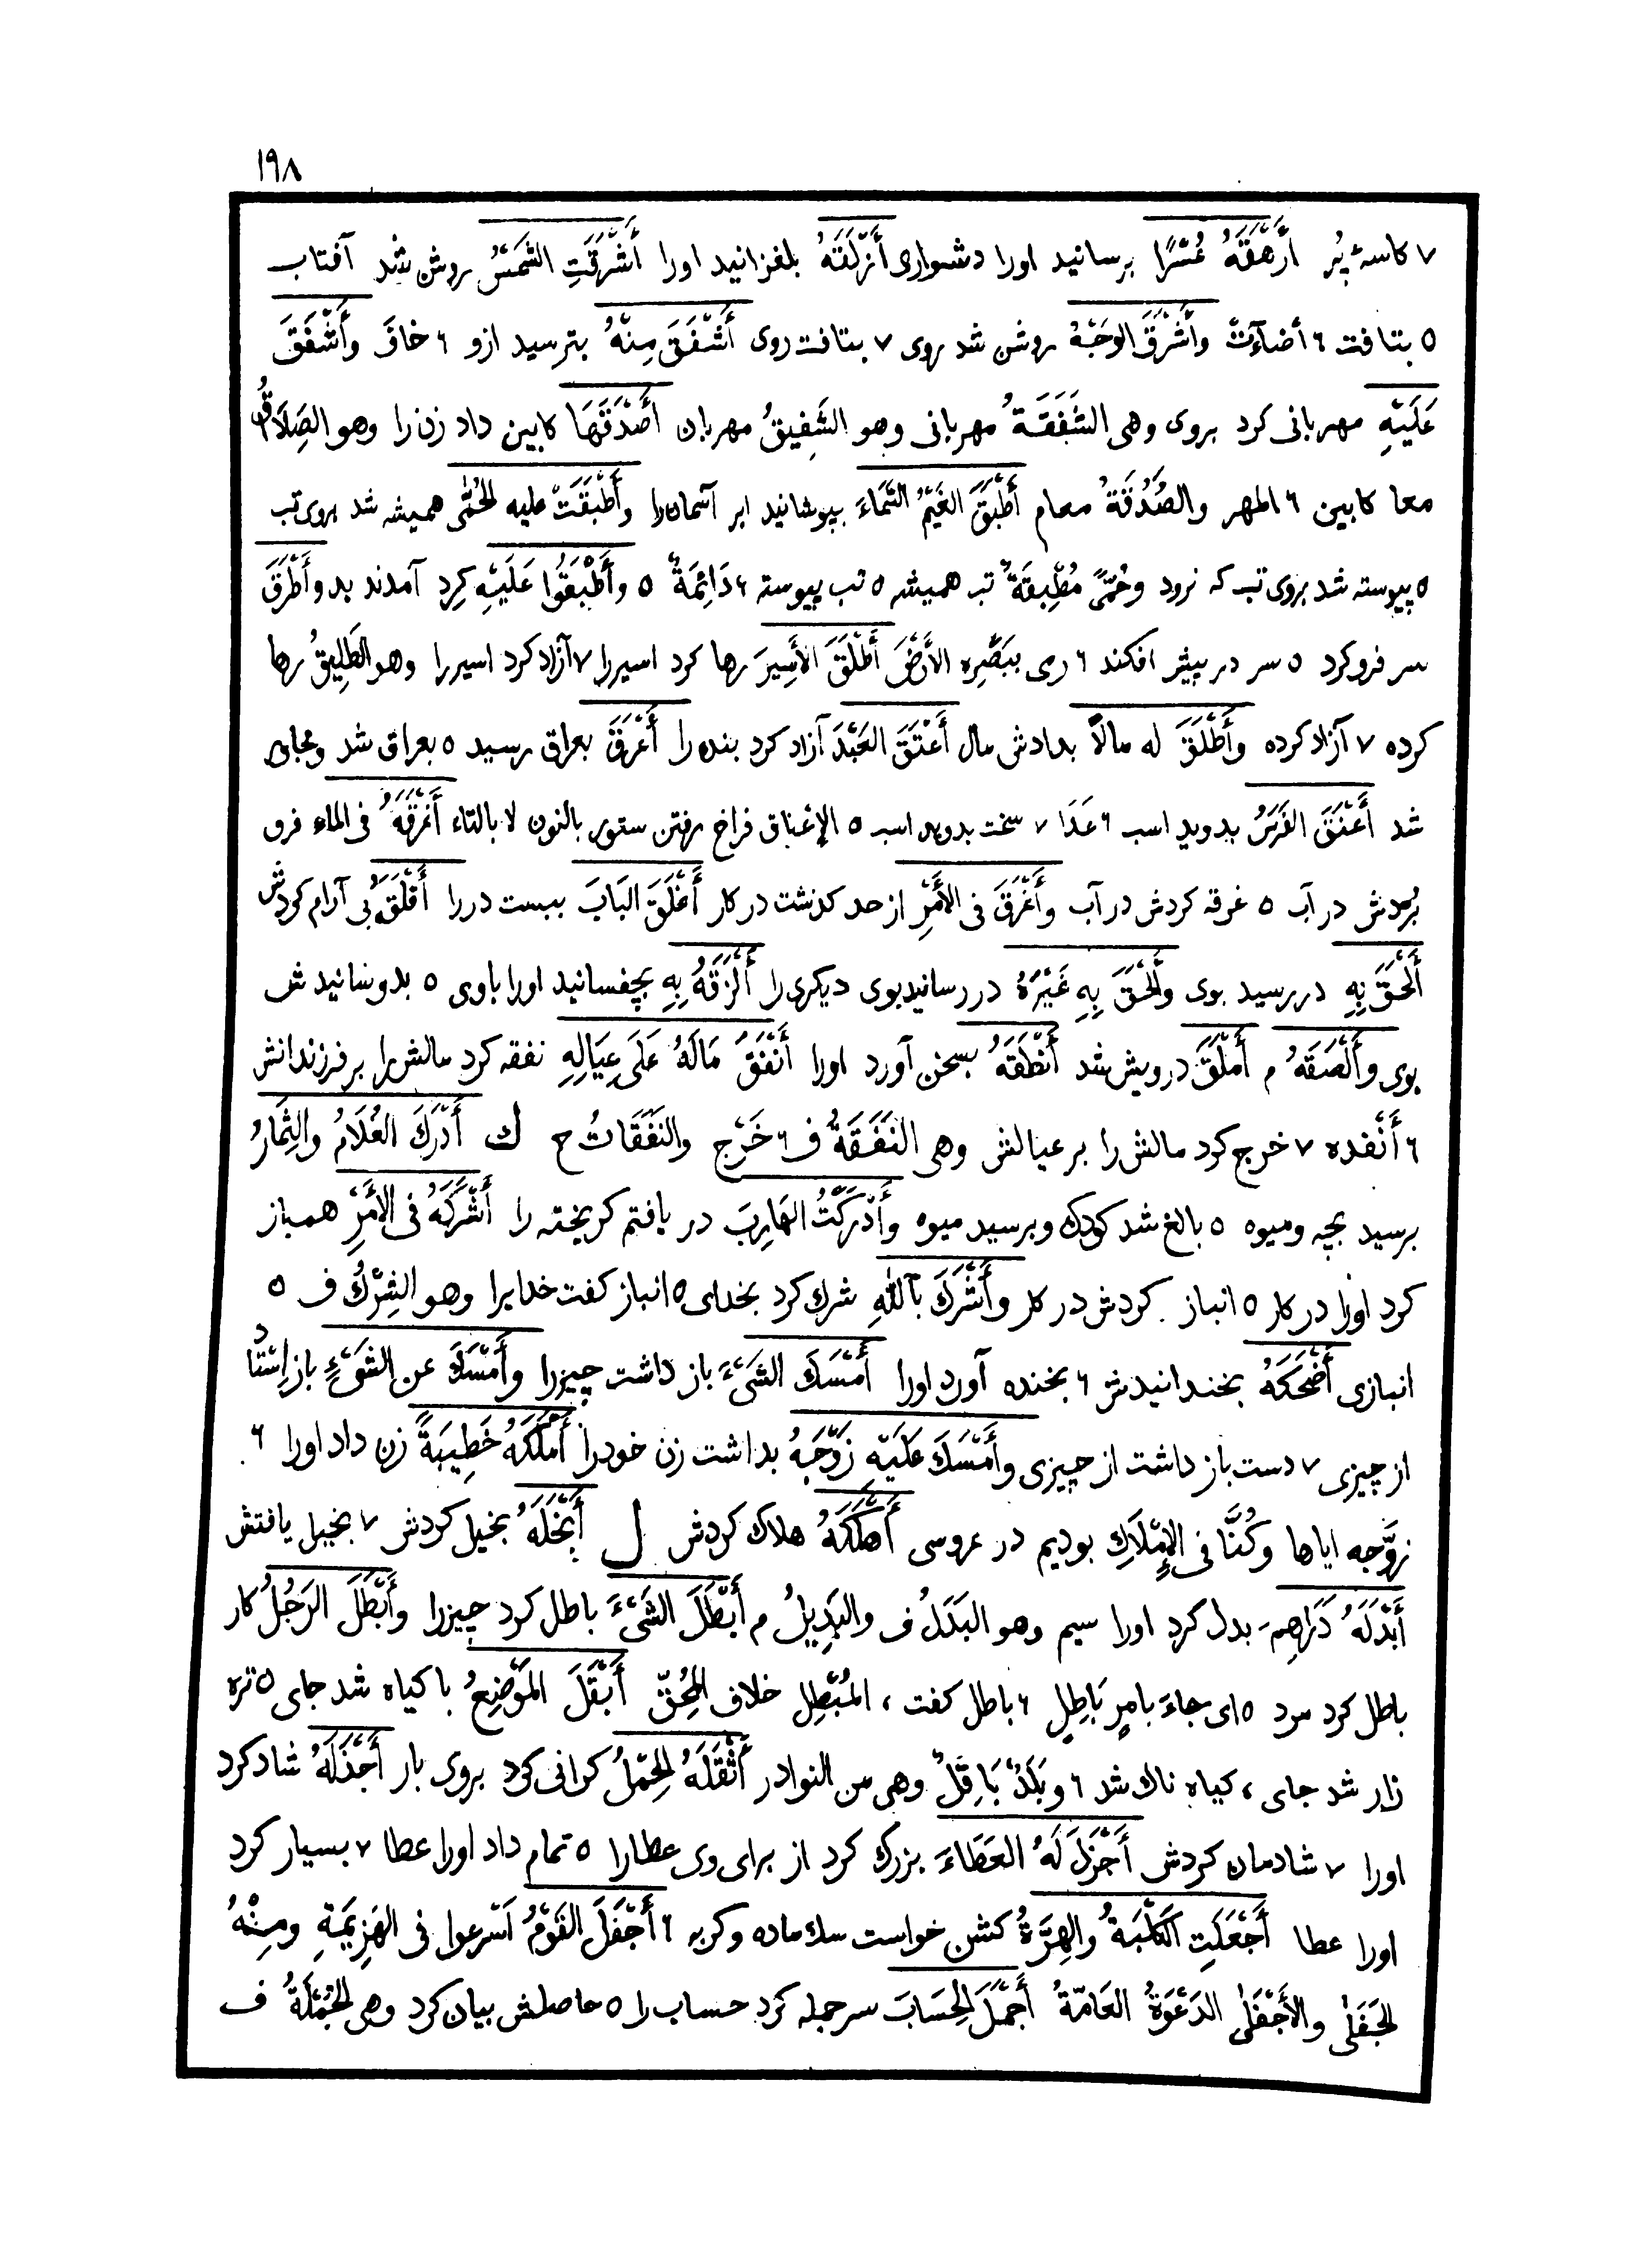 ١٩٨
٧ كاسهٔ پُر أَرْهَقَهُ عُسْرًا برسانید اورا دشواری أَزْلَقَهُ بلغزانید اورا أَشْرَقَتِ الشَّمْسُ روشن شد آفتاب
٥ بتافت ٦ أضآءَتْ وأَشْرَقَ الوَجْهُ روشن شد روی ٧ بتافت روی أَشْفَقَ مِنْهُ بترسید ازو ٦ خافَ وأَشْفَقَ
عَلَيْهِ مهربانی کرد بروی وهی الشَّفَقَةُ مهربانی وهو الشَّفِيقُ مهربان أَصْدَقَهَا کابین داد زن را وهو الصِّدَاقُ
معا کابین ٦ المهر والصُّدُقَةُ معام أَطْبَقَ الغَيْمُ السَّمَاءَ بپوشانید ابر آسمان را وأَطْبَقَتْ علیه الحُمَّى همیشه شد بروی تب
٥ پیوسته شد بروی تب که نرود وحُمًّى مُطْبِقَةٌ تب همیشه ٥ تب پیوسته ٦ دَائِمَةٌ ٥ وأَطْبَقُوا عَلَيْهِ کِرد آمدند بد وأَطْرَقَ
سر فرو کرد ٥ سر در پیش افکند ٦ رمی ببَصَرِه الأَرْضَ أَطْلَقَ الأَسِيرَ رها کرد اسیررا ٧ آزاد کرد اسیررا وهو الطَّلِيقُ رها
کرده ٧ آزاد کرده وأَطْلَقَ له مالاً بدادش مال أَعْتَقَ العَبْدَ آزاد کرد بنده را أَعْرَقَ بعراق رسید ٥ بعراق شد
شد أَعْنَقَ الفَرَسُ بدوید اسب ٦ عَدَا ٧ سخت بدوید اسب ٥ الإعْناق فراخ رفتن ستور بالنون لا بالتاء أَغْرَقَهُ فی الماء فرو
بُردش در آب ٥ غرقه کردش در آب وأَغْرَقَ فی الأَمْرِ از حد کذشت در کار أَغْلَقَ البَابَ ببست در را أَقْلَقَهُ بی آرام کردش
أَلْحَقَ بِهِ در رسید بوی وأَلْحَقَ بِهِ غَيْرَهُ در رسانید بوی دیکری را أَلْزَقَهُ بِهِ بچفسانید اورا باوی ٥ بدوسانیدش
بوی وأَلْصَقَهُ م أَمْلَقَ درویش شد أَنْطَقَهُ بسخن آورد اورا أَنْفَقَ مَالَهُ عَلَى عِيَالِهِ نفقه کرد مالش را بر فرزندانش
٦ أَنْفده ٧ خرج کرد مالش را بر عیالش وهی النَّفَقَةُ ف ٦ خَرْج والنَّفَقَاتُ ح ك أَدْرَكَ الغُلَامُ والثِّمَارُ
برسید بچه ومیوه ٥ بالغ شد کودك وبرسید میوه وأَدْرَكْتُ الهَارِبَ در یافتم کریخته را أَشْرَكَهُ فی الأَمْرِ همباز
کرد اورا در کار ٥ انباز کردش در کار وأَشْرَكَ بِٱللهِ شرك کرد بخدای ٥ انباز کفت خدایرا وهو الشِّرْكُ ف ٥
انبازی أَضْحَكَهُ بخندانیدش ٦ بخنده آورد اورا أَمْسَكَ الشَّيْءَ باز داشت چیزرا وأَمْسَكَ عن الشَّيْءِ باز اِسْتَاد
از چیزی ٧ دست باز داشت از چیزی وأَمْسَكَ عَلَيْهِ زَوْجَهُ بداشت زن خودرا أَمْلَكَهُ خَطِيبَةً زن داد اورا ٦
زوَّجه ایاها وکُنَّا فی الإِمْلَاكِ بودیم در عروسی أَهْلَكَهُ هلاك کردش ل أَبْخَلَهُ بخیل کردش ٧ بخیل یافتش
أَبْدَلَهُ دَرَاهِمَ بدل کرد اورا سیم وهو البَدَلُ ف والبَدِيلُ م أَبْطَلَ الشَّيْءَ باطل کرد چیزرا وأَبْطَلَ الرَّجُلُ کار
باطل کرد مرد ٥ ای جاءَ بامرٍ بَاطِلٍ ٦ باطل کفت ، المُبْطِل خلاف المُحِقّ أَبْقَلَ المَوْضِعُ با کیاه شد جای ٥ تره
زار شد جای ، کیاه ناك شد ٦ وبَلَدٌ بَاقِلٌ وهی من النوادر أَثْقَلَهُ الحِمْلُ کرانی کرد بروی بار أَجْذَلَهُ شاد کرد
اورا ٧ شادمان کردش أَجْزَلَ لَهُ العَطَاءَ بزرك کرد از برای وی عطارا ٥ تمام داد اورا عطا ٧ بسیار کرد
اورا عطا أَجْعَلَتِ الكَلْبَةُ والهِرَّةُ کشن خواست سك ماده وکربه ٦ أَجْفَلَ القَوْمُ اَسْرعوا فی الهَزِيمَةِ ومِنْهُ
الجَفَلَى والأَجْفَلَى الدَّعْوَةُ العَامَّةُ أَجْمَلَ الحِسَابَ سرجمله کرد حساب را ٥ حاصلش بیان کرد وهی الجُمْلَةُ ف